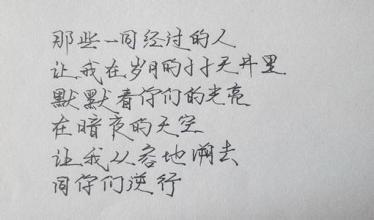 那些一同经过的人
让我在岁月的天井里
默默看你们的光亮
在暗夜的天空
让我从容地溯去
同你们逆行